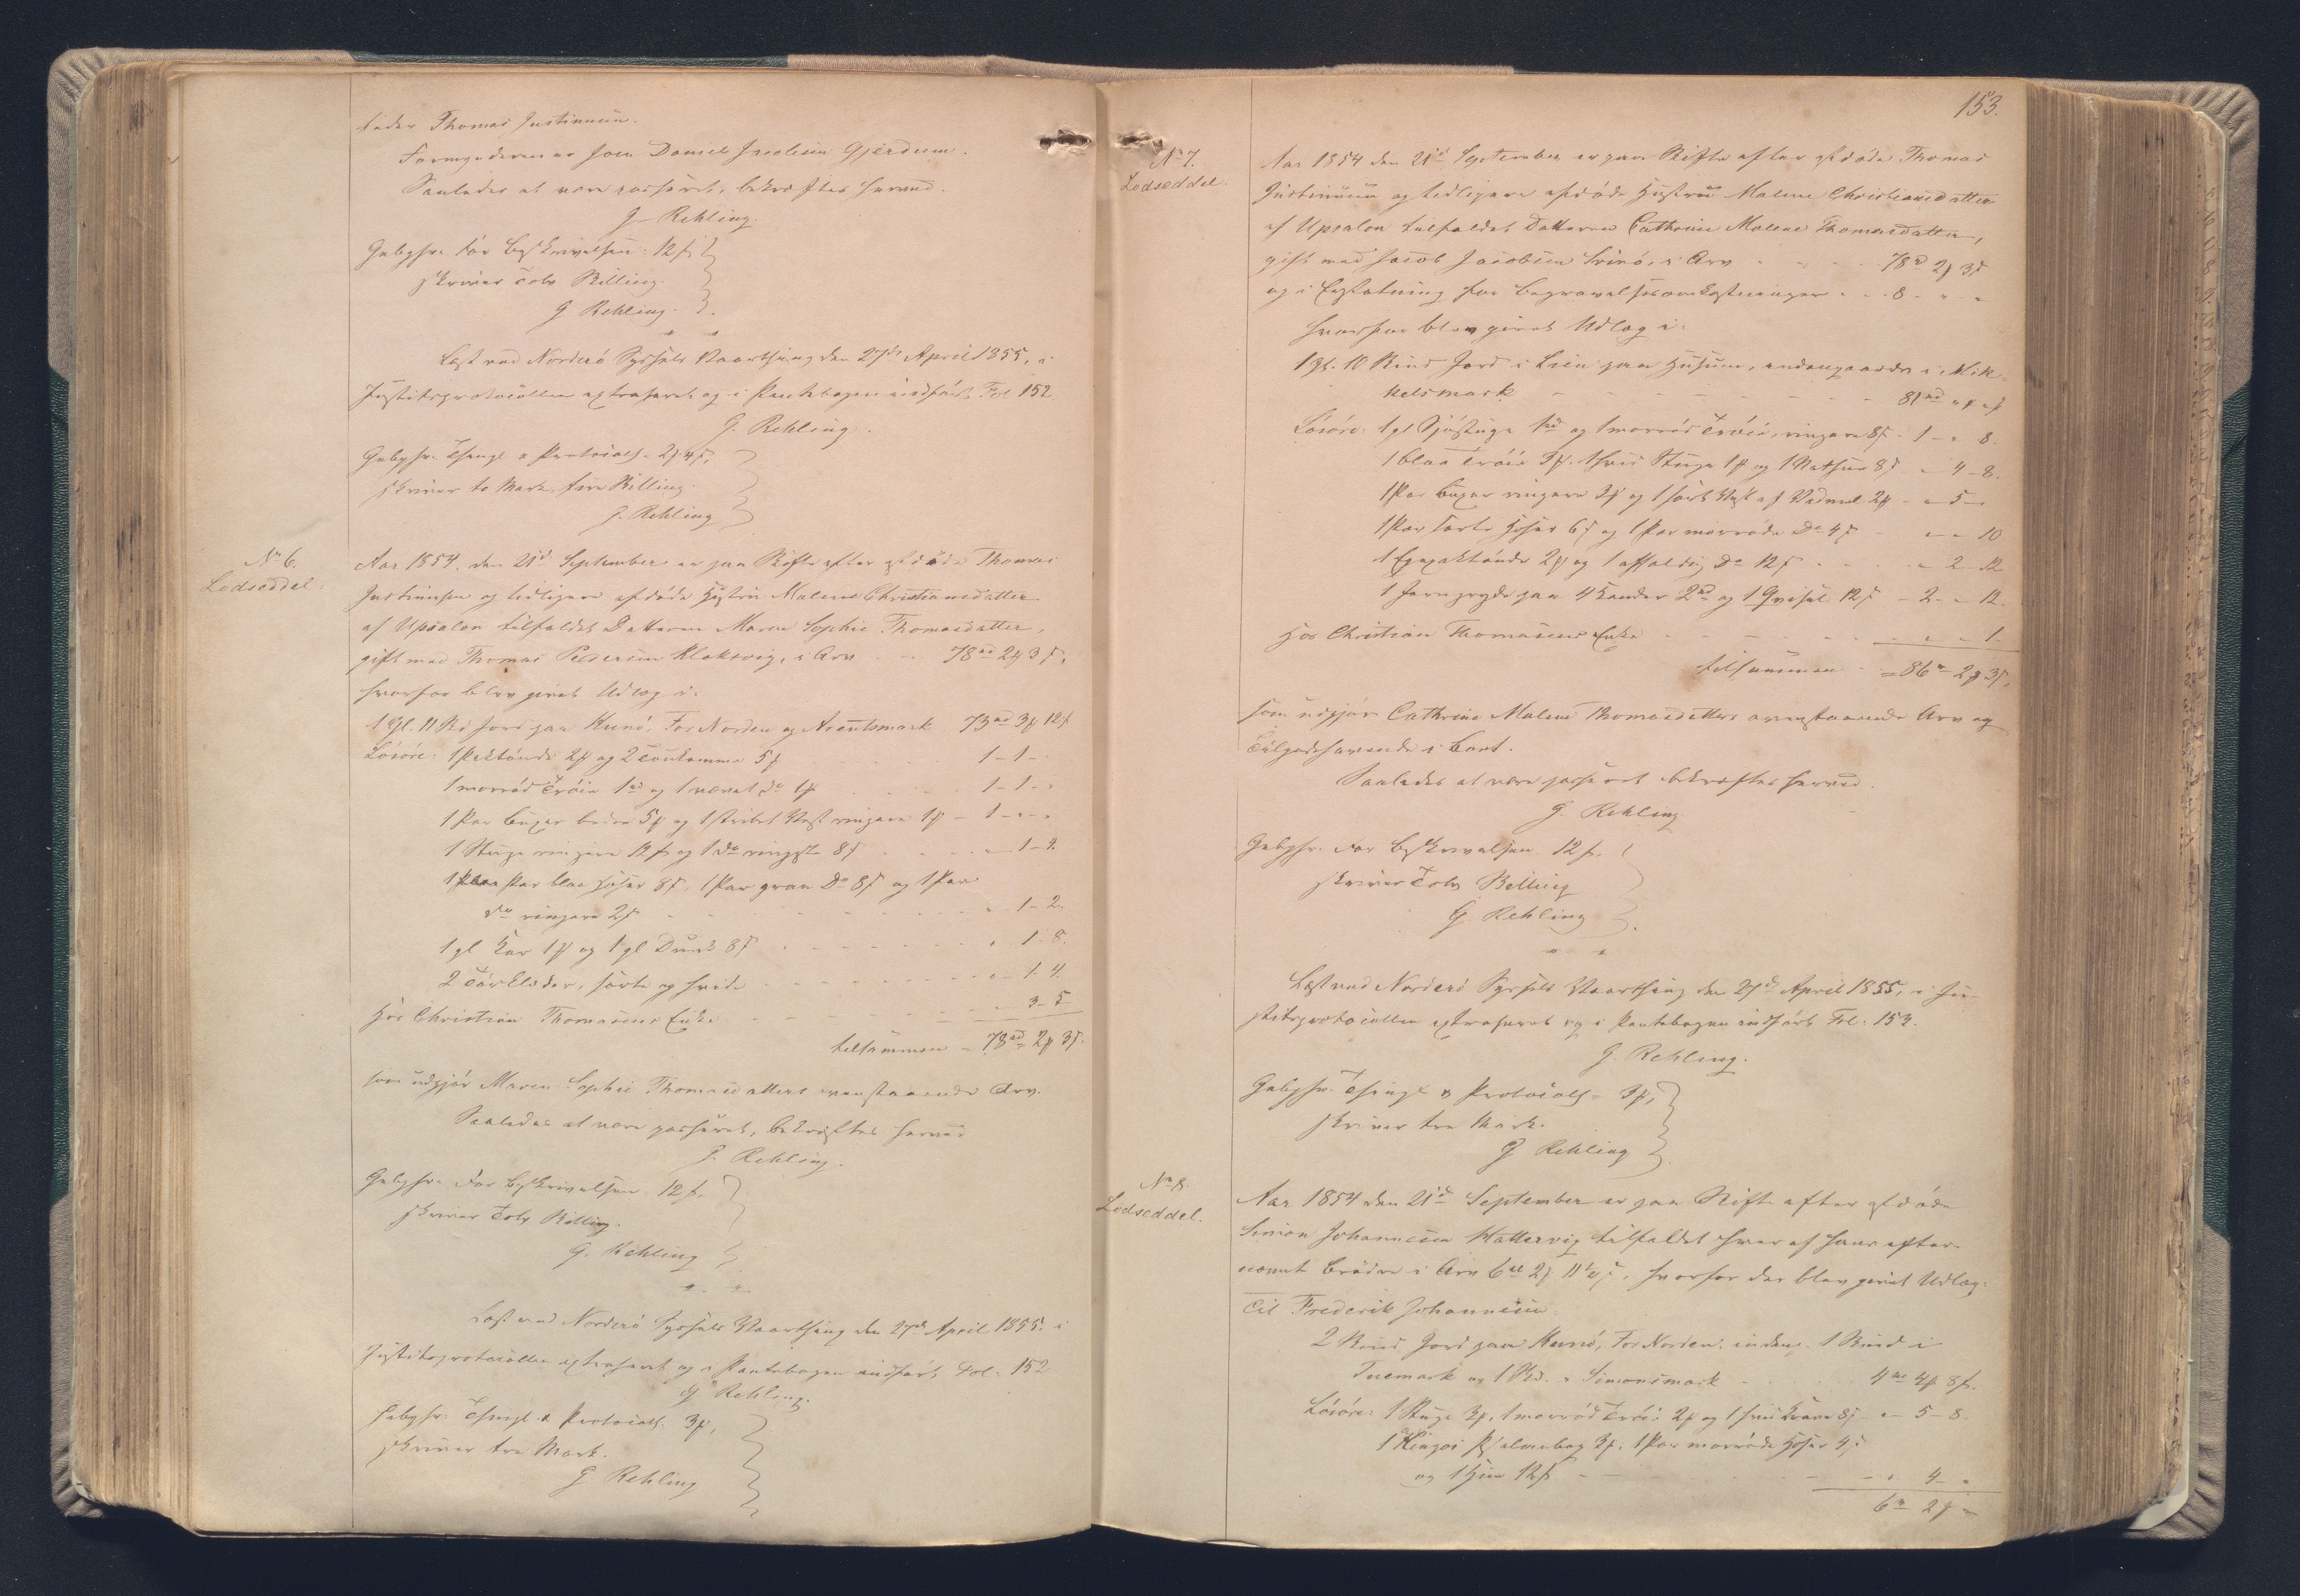 Fader Thomas Justinussen.
Formynderen er Joen Daniel Jacobsen Gjerdum.
Saaledes at være passeret, bekræftes herved.
G. Rehling.
Gebyhr: for Beskrivelsen: 12 s,
skriver Tolv Skilling.
G Rehling.
Læst ved Norderø Syssels Vaarthing den 27de April 1855, i
Justitsprotocollen extraheret og i Pantebogen indført Fol 152.
G. Rehling.
Gebyhr. Thingl. & Protocoll. 2 ¥ 4 s,
skriver to Mark, fire Skilling.
G. Rehling
No 6.
Lodseddel.
Aar 1854. den 21de September er paa Skifte efter afdøde Thomas
Justinussen og tidligere afdøde Hustru Malene Christiansdatter
af Upsalen tilfaldet Datteren Maren Sophie Thomasdatter,
gift med Thomas Pedersen Klaksvig, i Arv 78 rd 2 ¥ 3 s,
hvorfor blev givet Udlæg i:
1 Gl. 11 Sk Jord paa Kunø, For Norden og Arentsmark 73 rd 3 ¥ 12 s
Løsøre: 1 2 ¥ og 2 5 ¥ 1 - 1 -
1 morrød Trøie 1 rd og 1 vævet do 1 ¥ 1 - 1 - "
1 Par Buxer bedre 5 ¥ og 1 stribet Vest ringere 1 ¥ - 1 - " - "
1 Stuge ringere 12 s og 1 do ringeste 8 s " - 1 - 4.
1 Par blaa Hoser 8 s, 1 Par graa Do 8 s og 1 Par
do ringere 2 s " - 1 - 2.
1 gl Kar 1 ¥ og 1 gl Dunk 8 s " 1 - 8.
2 Tørklæder, sorte og hvide " - 1 - 4.
Hos Christian Thomasens Enke " 3 - 5
tilsammen = 78 rd 2 ¥ 3 s.
som udgjør Maren Sophie Thomasdatters ovenstaaende Arv.
Saaledes at være passeret, bekræftes herved
G. Rehling.
Gebyhr. for Beskrivelsen 12 s,
skriver Tolv Skilling.
G. Rehling
Læst ved Norderø Syssels Vaarthing den 27de April 1855. i
Justitsprotocollen extraheret og i Pantebogen indført Fol. 152
G. Rehling.
Gebyhr: Thingl. & Protocoll. 3 ¥,
skriver tre Mark.
G Rehling
153.
No 7.
Lodseddel.
Aar 1854 den 21de September er paa Skifte efter afdøde Thomas
Justinussen og tidligere afdøde Hustru Malene Christiansdatter
af Upsalen tilfaldet Datteren Cathrine Malene Thomasdatter,
gift med Jacob Jacobsen Svinø, i Arv 78 rd 2 ¥ 3 s
og i Erstatning for Begravelsesomkostninger 8 - " - "
hvorfor blev givet Udlæg i:
1 Gl. 10 Skind Jord i Lien paa Husum, undengaards i Mik-
kelsmark 81 rd " ¥ " s
Løsøre: 1 gl Sjøstuge 1 rd og 1 morrød Trøie, ringere 8 s - 1 - " 8.
1 blaa Trøie 3 ¥. 1 hvid Stuge 1 ¥ og 1 8 s - " 4 - 8.
1 Par Buxer ringere 3 ¥ og 1 sort Vest af Vadmel 2 ¥ - " 5 - "
1 Par sorte Hoser 6 s og 1 Par morrøde Do 4 s " - " 10
1 2 ¥ og 1 Do 12 s " 2 - 12
1 Jerngryde paa 4 Kander 2 rd og 1 12 s - 2 - " 12.
Hos Christian Thomasens Enke " - " - 1.
tilsammen = 86 rd 2 ¥ 3 s,
som udgjør Cathrine Malene Thomasdatters ovenstaaende Arv og
Tilgodehavende i Boet.
Saaledes at være passeret bekræftes herved.
G. Rehling
Gebyhr. for Beskrivelsen 12 s,
skriver Tolv Skilling
G. Rehling
Læst ved Norderø Syssels Vaarthing den 27de April 1855, i Ju-
stitsprotocollen extraheret og i Pantebogen indført Fol: 153.
G. Rehling.
Gebyhr. Thingl & Protocoll. 3 ¥,
skriver tre Mark.
G Rehling
No 8.
Lodseddel.
Aar 1854 den 21de September er paa Skifte efter afdøde
Simon Johannesen Hattervig tilfaldet hver af hans efter-
nævnte Brødre i Arv 6 rd 2 ¥ 11 1/2 s, hvorfor der blev givet Udlæg:
Til Frederik Johannesen:
2 Skind Jord paa Kunø, For Norden, indens. 1 Skind i
Tuemark og 1 Sk. i Simonsmark 4 rd 4 ¥ 8 s.
Løsøre: 1 Stuge 3 ¥, 1 morrød Trøie 2 ¥ og 1 hvid 8 s " - 5 - 8.
1 Kingos Psalmebog 3 ¥. 1 Par morrøde Hoser 4 s
og 1 12 s " 4 - "
6 rd 2 ¥ "